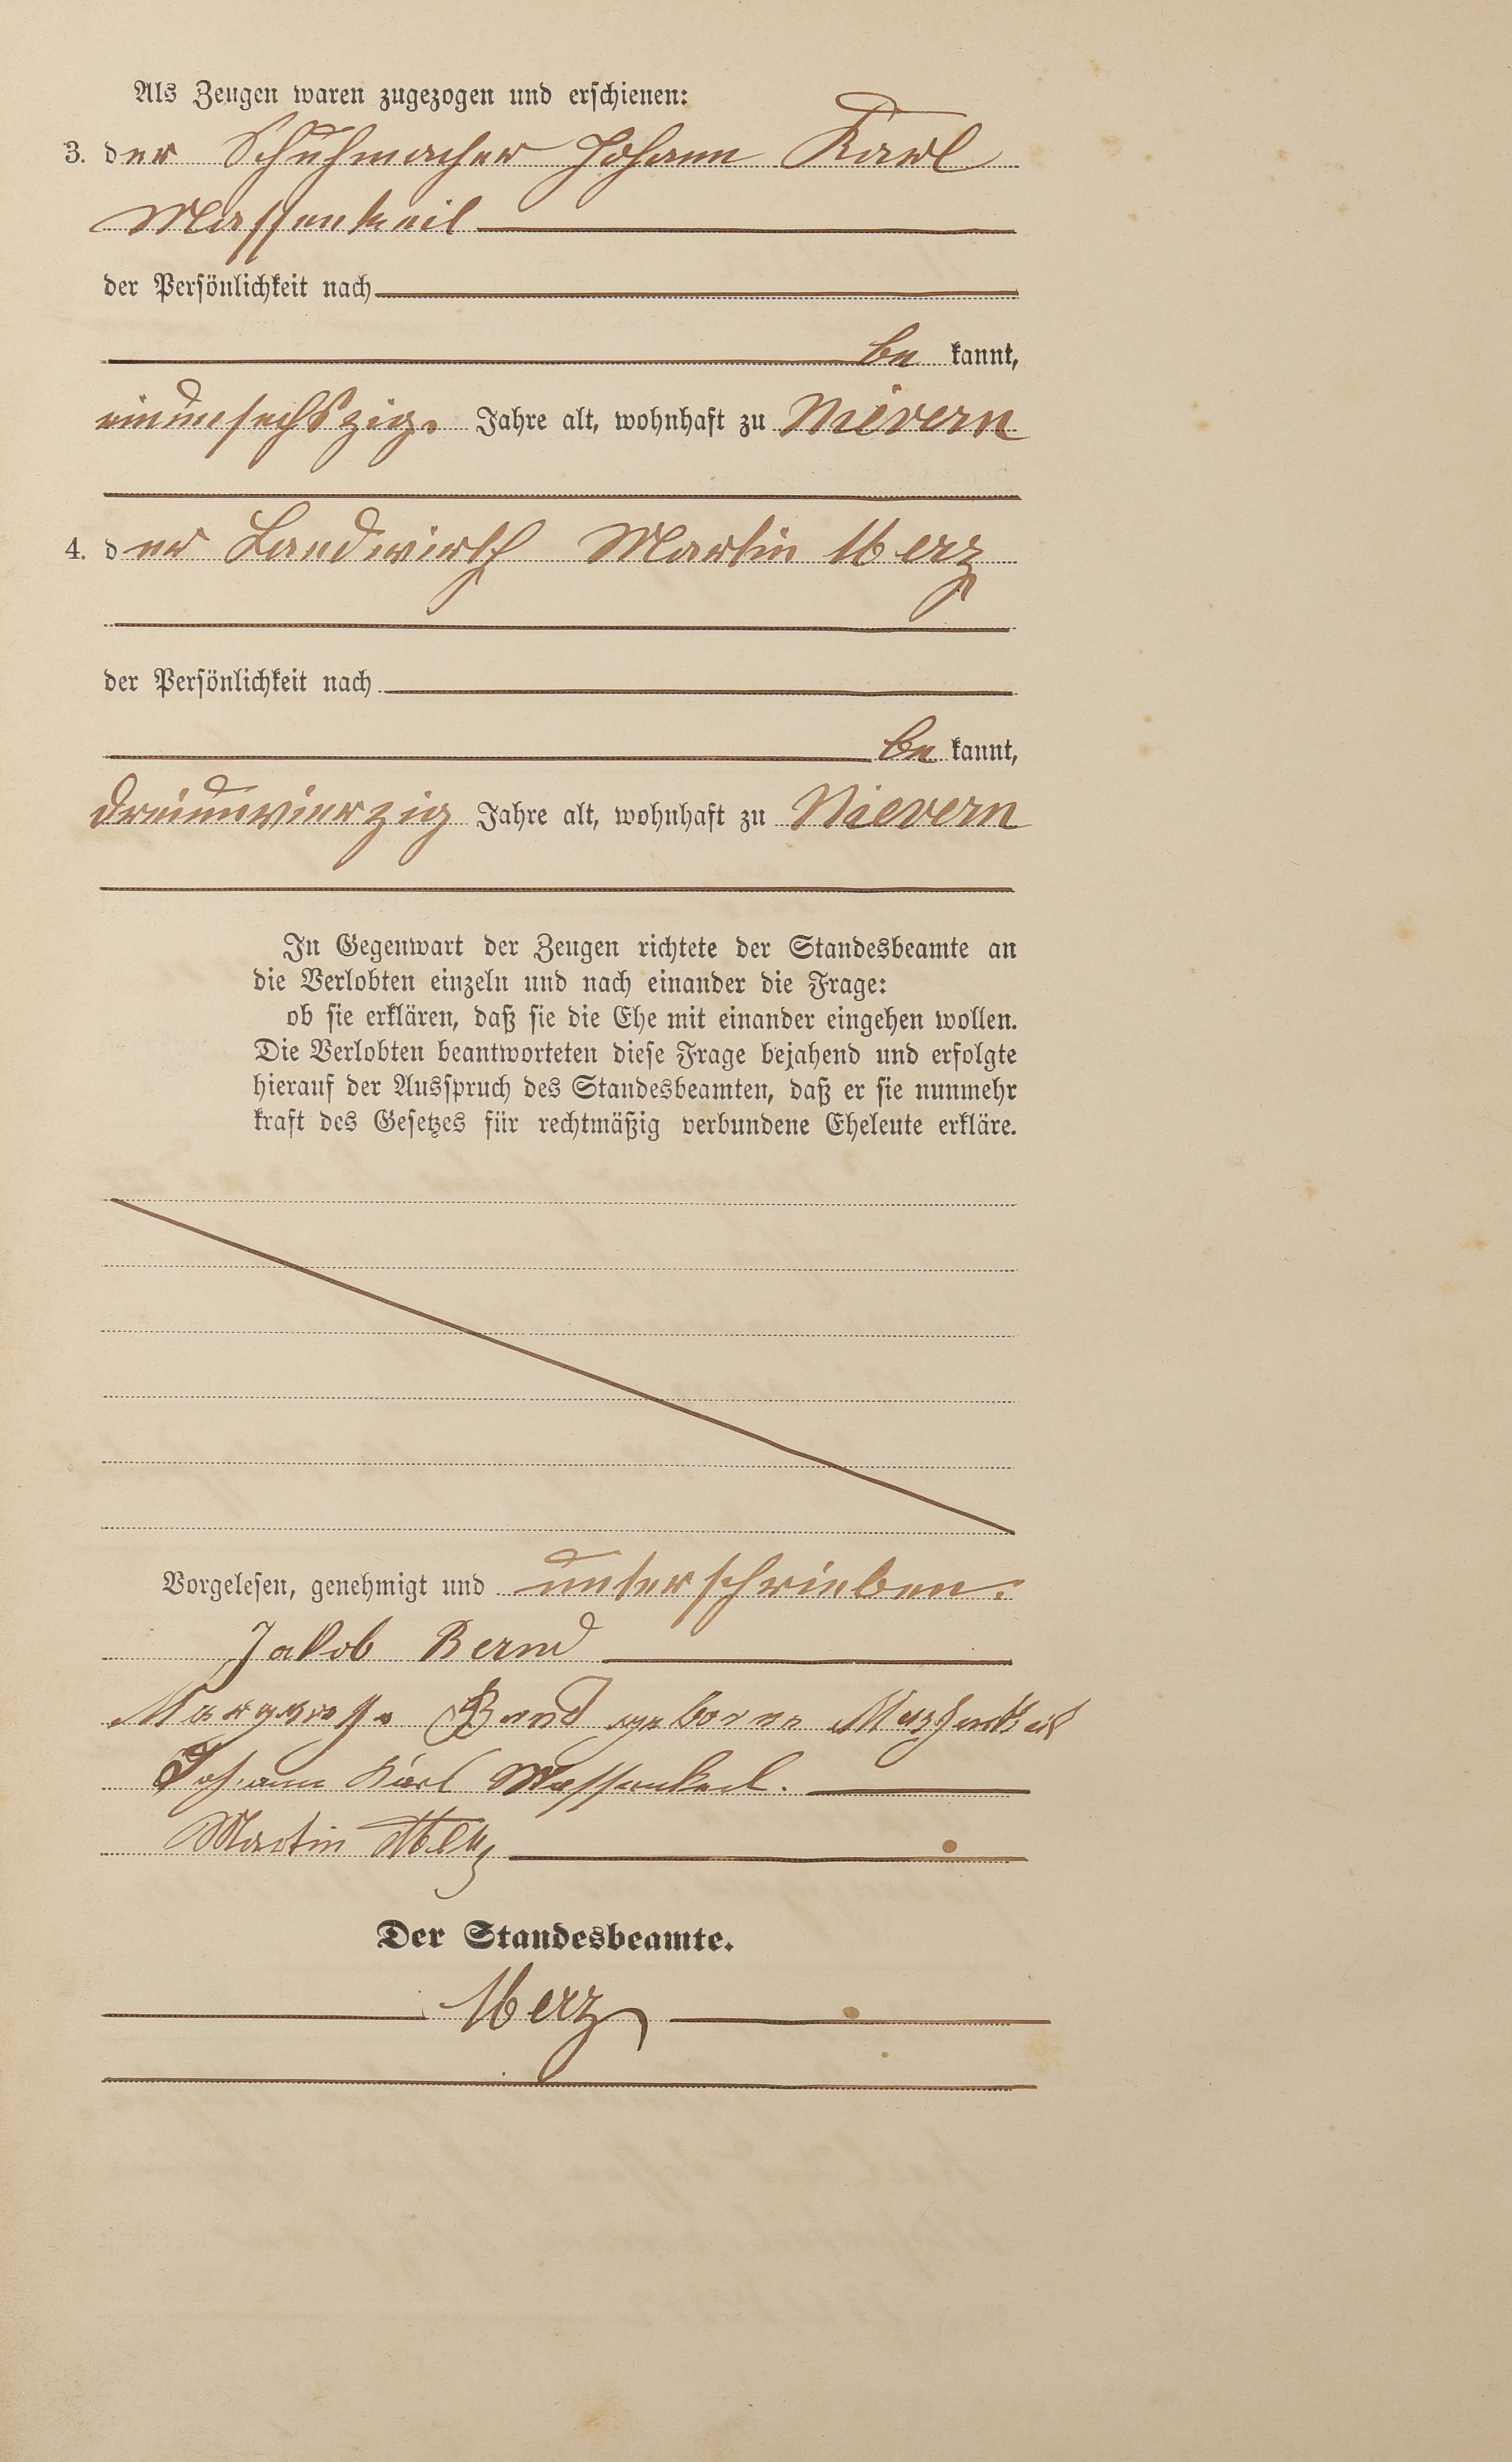 Als Zeugen waren zugezogen und erschienen:
3. der Schuhmacher Johann Karl
Massenkeil
der Persönlichkeit nach
be kannt,
einunsechszig. Jahre alt, wohnhaft zu Nievern
4. der Landwirth Martin Merz
der Persönlichkeit nach
be kannt,
dreiunvierzig Jahre alt, wohnhaft zu Nievern
In Gegenwart der Zeugen richtete der Standesbeamte an
die Verlobten einzeln und nach einander die Frage:
ob sie erklären, daß sie die Ehe mit einander eingehen wollen.
Die Verlobten beantworteten diese Frage bejahend und erfolgte
hierauf der Ausspruch des Standesbeamten, daß er sie nunmehr
kraft des Gesetzes für rechtmäßig verbundene Eheleute erkläre.
Vorgelesen, genehmigt und unterschrieben.
Jakob Bernd
geborne
Johann Karl Massenkeil.
Martin Merz
Der Standesbeamte.
Merz